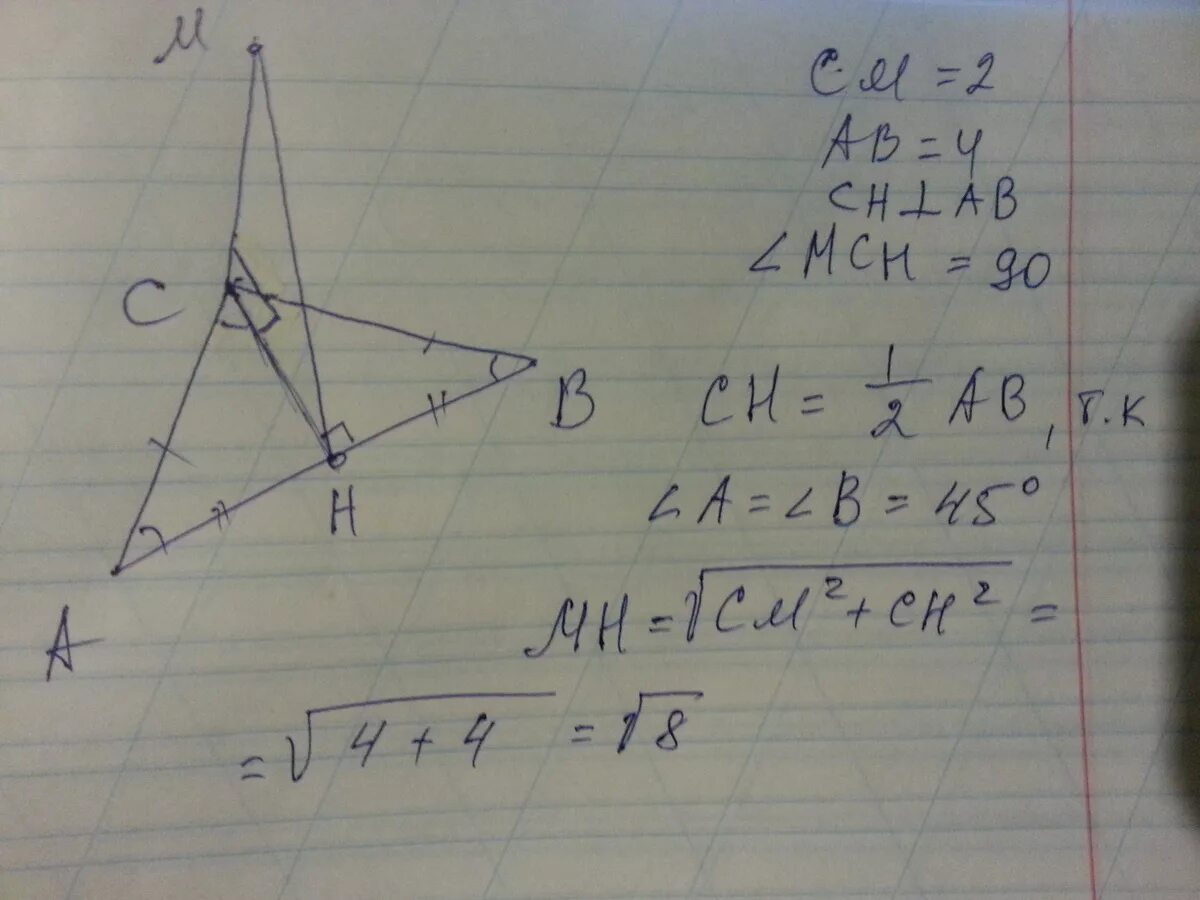 М
C
B
H
A
CM = 2
AB = 4
CH ⊥ AB
∠MCH = 90
CH = 1/2 AB, т.к
∠A = ∠B = 45°
MH = √(CM² + CH²) =
= √(4 + 4) = √8